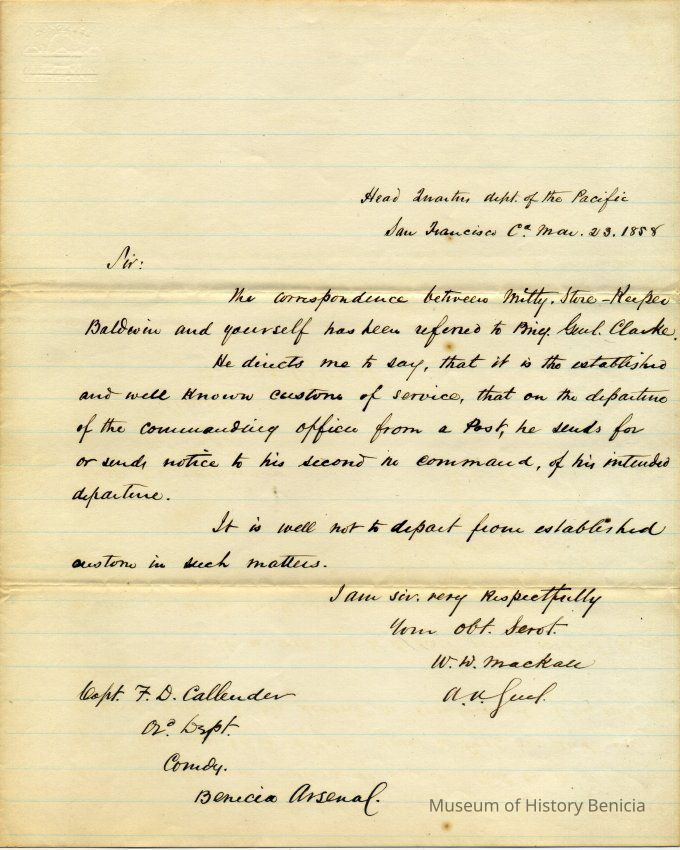 Head Quarters dept. of the Pacific
San Francisco Ca. Mar. 23. 1858
Sir:
The correspondence between Milty. Store-Keeper
Baldwin and yourself has been referred to Brig. Genl. Clarke.
He directs me to say, that it is the established
and well known custom of service, that on the departure
of the commanding officer from a Post, he sends for
or sends notice to his second in command, of his intended
departure.
It is well not to depart from established
custom in such matters.
I am sir. very Respectfully
Your Obt. Servt.
W. W. Mackall
A. A. Genl.
Capt. F. D. Callender
Od. Dept.
Comdg.
Benicia Arsenal.
Museum of History Benicia